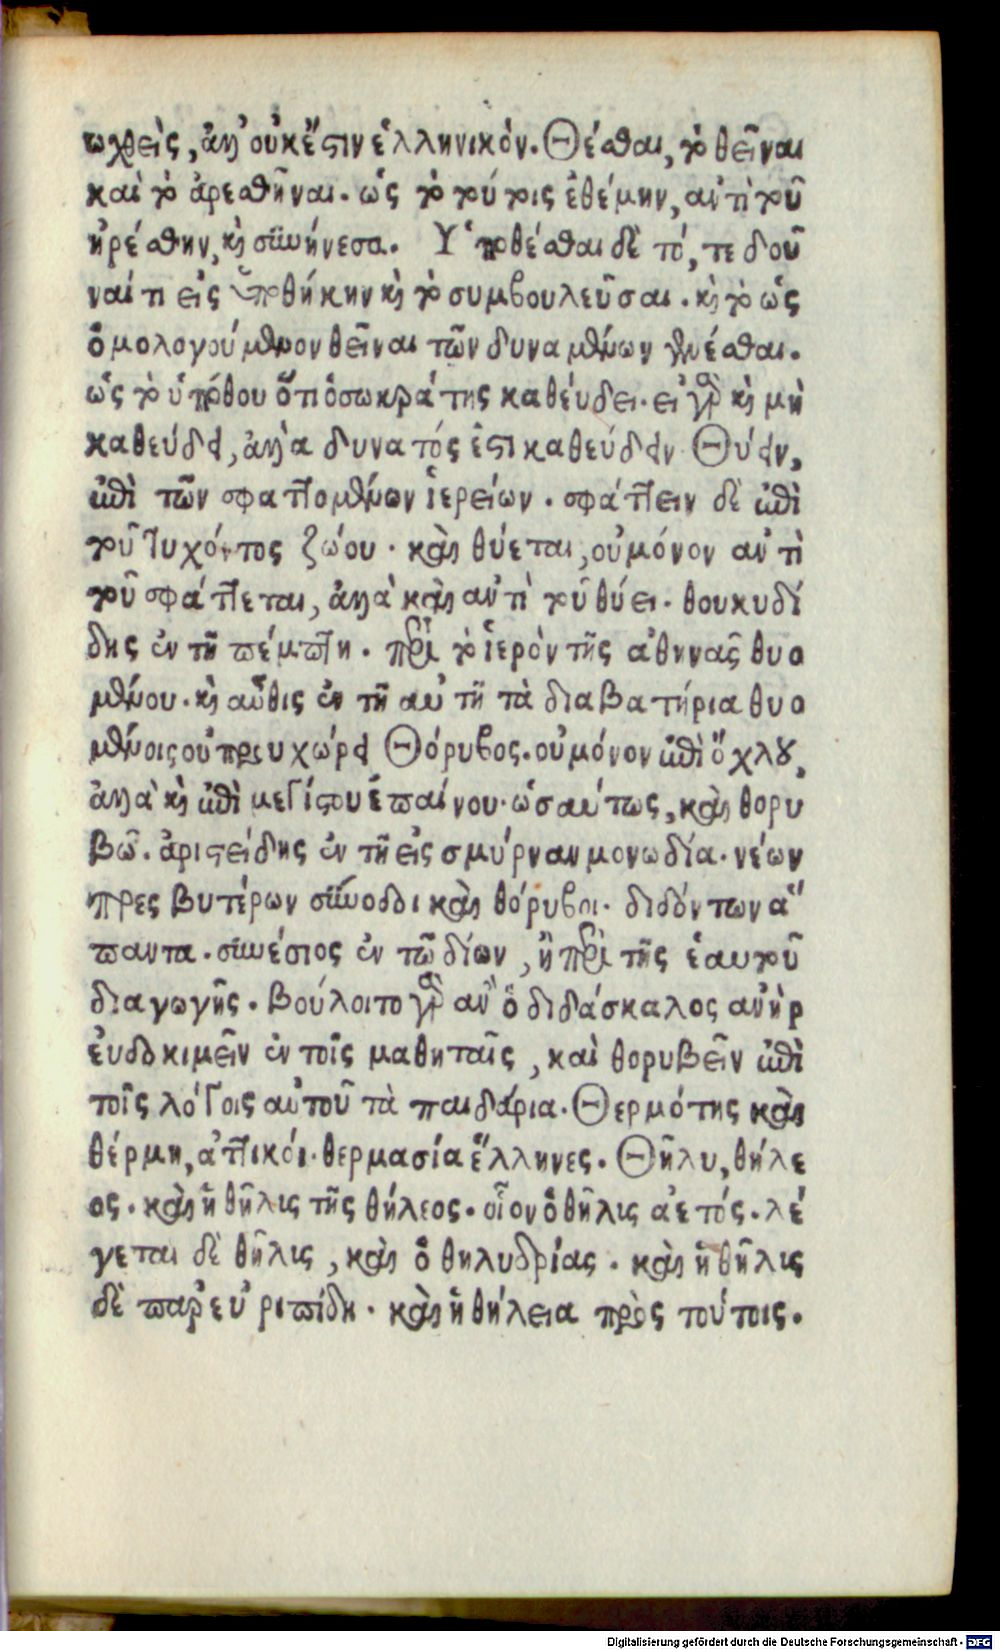 πωχθεὶς, ἀλλ' οὐκ ἔστιν ἑλληνικόν. Θέσθαι, τὸ θεῖναι
καὶ τὸ ἀρεσθῆναι. ὡς τὸ τούτοις ἐθέμην, αντὶ τοῦ
ἠρέσθην, καὶ συνήνεσα. Ὑποθέσθαι δὲ τό, τε δοῦ
ναί τι εἰς ὑποθήκην καὶ τὸ συμβουλεῦσαι. καὶ τὸ ὡς
ὁμολογούμενον θεῖναι τῶν δυναμένων γενέσθαι.
ὡς τὸ ὑπόθου ὅτι ὁ σωκράτης καθεύδει. εἰ γὰρ καὶ μὴ
καθεύδει, ἀλλὰ δυνατός ἐστι καθεύδειν Θύειν,
ἐπὶ τῶν σφαττομένων ἱερείων. σφάττειν δὲ ἐπὶ
τοῦ τυχόντος ζώου. καὶ θύεται, οὐ μόνον αντὶ
τοῦ σφάττεται, ἀλλὰ καὶ αντὶ τοῦ θύει. θουκυδί
δης ἐν τῇ πέμπτῃ. περὶ τὸ ἱερὸν τῆς ἀθηνᾶς θυο
μένου. καὶ αὖθις ἐν τῇ αυτῇ τὰ διαβατήρια θυο
μένοις οὐ προυχώρει Θόρυβος. οὐ μόνον ἐπὶ ὄχλου,
ἀλλὰ καὶ ἐπὶ μεγίστου ἐπαίνου. ὡσαύτως, καὶ θορυ
βῶ. ἀριστείδης ἐν τῇ εἰς σμύρναν μονωδία. νέων
πρεσβυτέρων σύνοδοι καὶ θόρυβοι. διδόντων ἅ
παντα. συνέσιος ἐν τῶ δίων, ἢ περὶ τῆς ἑαυτοῦ
διαγωγῆς. βούλοιτο γὰρ αν ὁ διδάσκαλος ανὴρ
ἐυδοκιμεῖν ἐν τοῖς μαθηταῖς, καὶ θορυβεῖν ἐπὶ
τοῖς λόγοις αὐτοῦ τὰ παιδάρια. Θερμότης καὶ
θέρμη, ἀττικόι. θερμασία ἕλληνες. Θῆλυ, θήλε
ος. καὶ ἡ θῆλις τῆς θήλεος. οἷον ὁ θῆλις ἀετός. λέ
γεται δὲ θῆλις, καὶ ὁ θηλυδρίας. καὶ ἡ θῆλις
δὲ παρ' ευριπίδη. καὶ ἡ θήλεια πρὸς τούτοις.
Digitalisierung gefördert durch die Deutsche Forschungsgemeinschaft - DFG